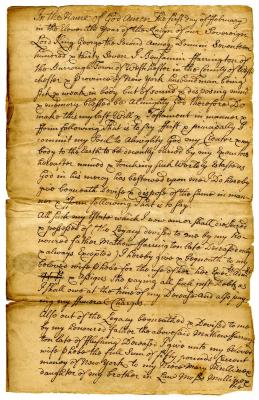 In the Name of God Amen the first day of february
in the Eleventh year of the Reign of our Sovereign
Lord King George the Second Annoq Domini Seventeen
hundred & thirty Seven I Benjamin Farrington of
the Burrough Town of Westchester in the County of West
chester & Province of New york husbandman being
sick & weak in body but of sound & disposing mind
& memory blessed be Almighty God therefore Do
make this my last Will & Testament in manner &
form following That is to say first & principally I
commit my Soul to Almighty God my Creator & my
body to the Earth to be decently buried by my Executors
hereafter named & touching such Worldly Estate as
God in his mercy has bestowed upon me I Do hereby
give bequeath Devise & dispose of the same in man
ner & form following That is to say
All such my Estate which I now own or shall
possessed of the Legacy devised to me by my ho
noured father Mathew Farrington late Deceased only
& always Excepted I hereby give & bequeath to my
beloved wife Phebe for the use of her
& Assigns She paying all such just Debts as
I shall owe at the time of my Decease and also pay
ing my funeral Charges
Also out of the Legacy bequeathed & Devised to me
by my honoured father the aforesaid Mathew Farring
ton late of flushing Deceased I give unto my beloved
wife Phebe the full Sum of fifty pounds Current
money of New York to my
daughter of my brother in Law